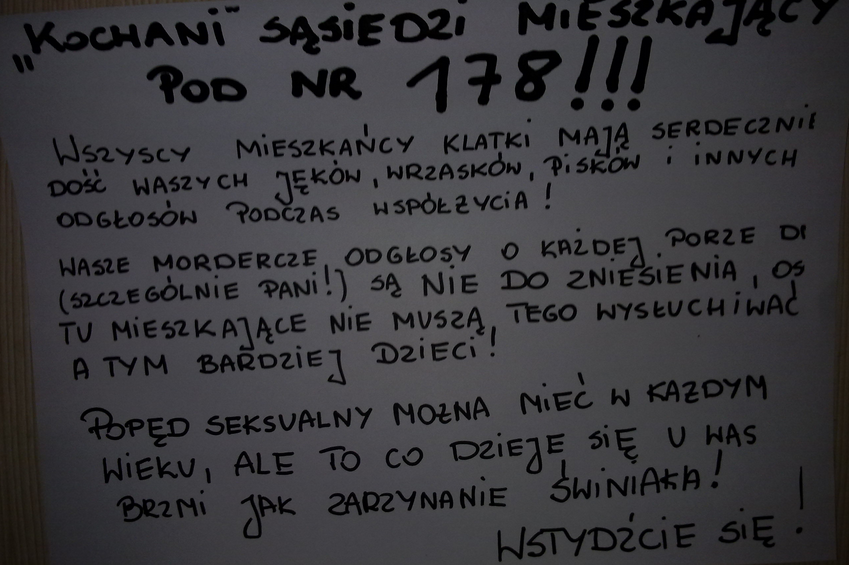 „KOCHANI" SĄSIEDZI MIESZKAJĄCY
POD NR 178!!!
WSZYSCY MIESZKAŃCY KLATKI MAJĄ SERDECZNIE
DOŚĆ WASZYCH JĘKÓW, WRZASKÓW, PISKÓW I INNYCH
ODGŁOSÓW PODCZAS WSPÓŁŻYCIA!
WASZE MORDERCZE ODGŁOSY O KAŻDEJ PORZE
(SZCZEGÓLNIE PANI!) SĄ NIE DO ZNIESIENIA,
TU MIESZKAJĄCE NIE MUSZĄ TEGO WYSŁUCHIWAĆ
A TYM BARDZIEJ DZIECI!
POPĘD SEKSUALNY MOŻNA MIEĆ W KAŻDYM
WIEKU, ALE TO CO DZIEJE SIĘ U WAS
BRZMI JAK ZARZYNANIE ŚWINIAKA!
WSTYDŹCIE SIĘ!